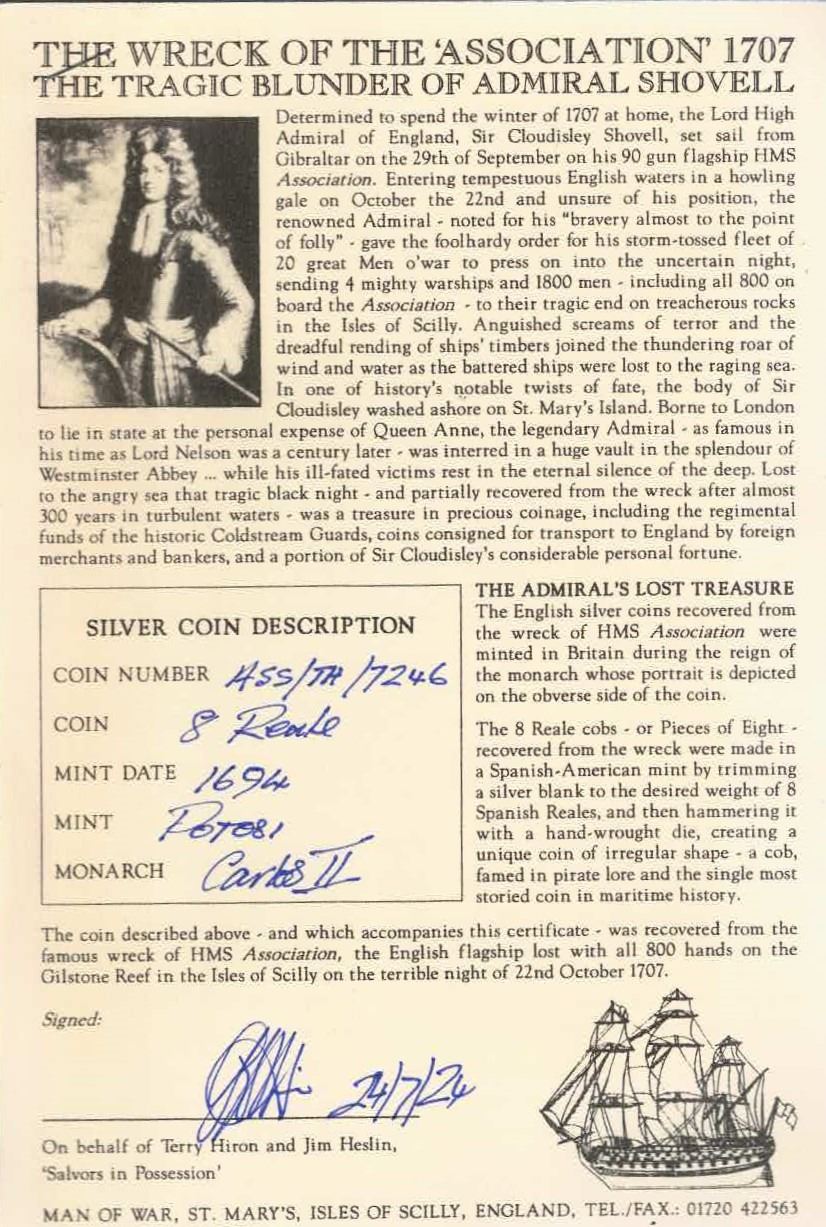 THE WRECK OF THE 'ASSOCIATION' 1707
THE TRAGIC BLUNDER OF ADMIRAL SHOVELL
Determined to spend the winter of 1707 at home, the Lord High
Admiral of England, Sir Cloudisley Shovell, set sail from
Gibraltar on the 29th of September on his 90 gun flagship HMS
Association. Entering tempestuous English waters in a howling
gale on October the 22nd and unsure of his position, the
renowned Admiral - noted for his "bravery almost to the point
of folly" - gave the foolhardy order for his storm-tossed fleet of
20 great Men o'war to press on into the uncertain night,
sending 4 mighty warships and 1800 men - including all 800 on
board the Association - to their tragic end on treacherous rocks
in the Isles of Scilly. Anguished screams of terror and the
dreadful rending of ships' timbers joined the thundering roar of
wind and water as the battered ships were lost to the raging sea.
In one of history's notable twists of fate, the body of Sir
Cloudisley washed ashore on St. Mary's Island. Borne to London
to lie in state at the personal expense of Queen Anne, the legendary Admiral - as famous in
his time as Lord Nelson was a century later - was interred in a huge vault in the splendour of
Westminster Abbey ... while his ill-fated victims rest in the eternal silence of the deep. Lost
to the angry sea that tragic black night - and partially recovered from the wreck after almost
300 years in turbulent waters - was a treasure in precious coinage, including the regimental
funds of the historic Coldstream Guards, coins consigned for transport to England by foreign
merchants and bankers, and a portion of Sir Cloudisley's considerable personal fortune.
SILVER COIN DESCRIPTION
COIN NUMBER ASS/TH/7246
COIN 8 Reale
MINT DATE 1694
MINT Potosi
MONARCH Carlos II
THE ADMIRAL'S LOST TREASURE
The English silver coins recovered from
the wreck of HMS Association were
minted in Britain during the reign of
the monarch whose portrait is depicted
on the obverse side of the coin.
The 8 Reale cobs - or Pieces of Eight -
recovered from the wreck were made in
a Spanish-American mint by trimming
a silver blank to the desired weight of 8
Spanish Reales, and then hammering it
with a hand-wrought die, creating a
unique coin of irregular shape - a cob,
famed in pirate lore and the single most
storied coin in maritime history.
The coin described above - and which accompanies this certificate - was recovered from the
famous wreck of HMS Association, the English flagship lost with all 800 hands on the
Gilstone Reef in the Isles of Scilly on the terrible night of 22nd October 1707.
Signed:
24/7/24
On behalf of Terry Hiron and Jim Heslin,
'Salvors in Possession'
MAN OF WAR, ST. MARY'S, ISLES OF SCILLY, ENGLAND, TEL./FAX.: 01720 422563